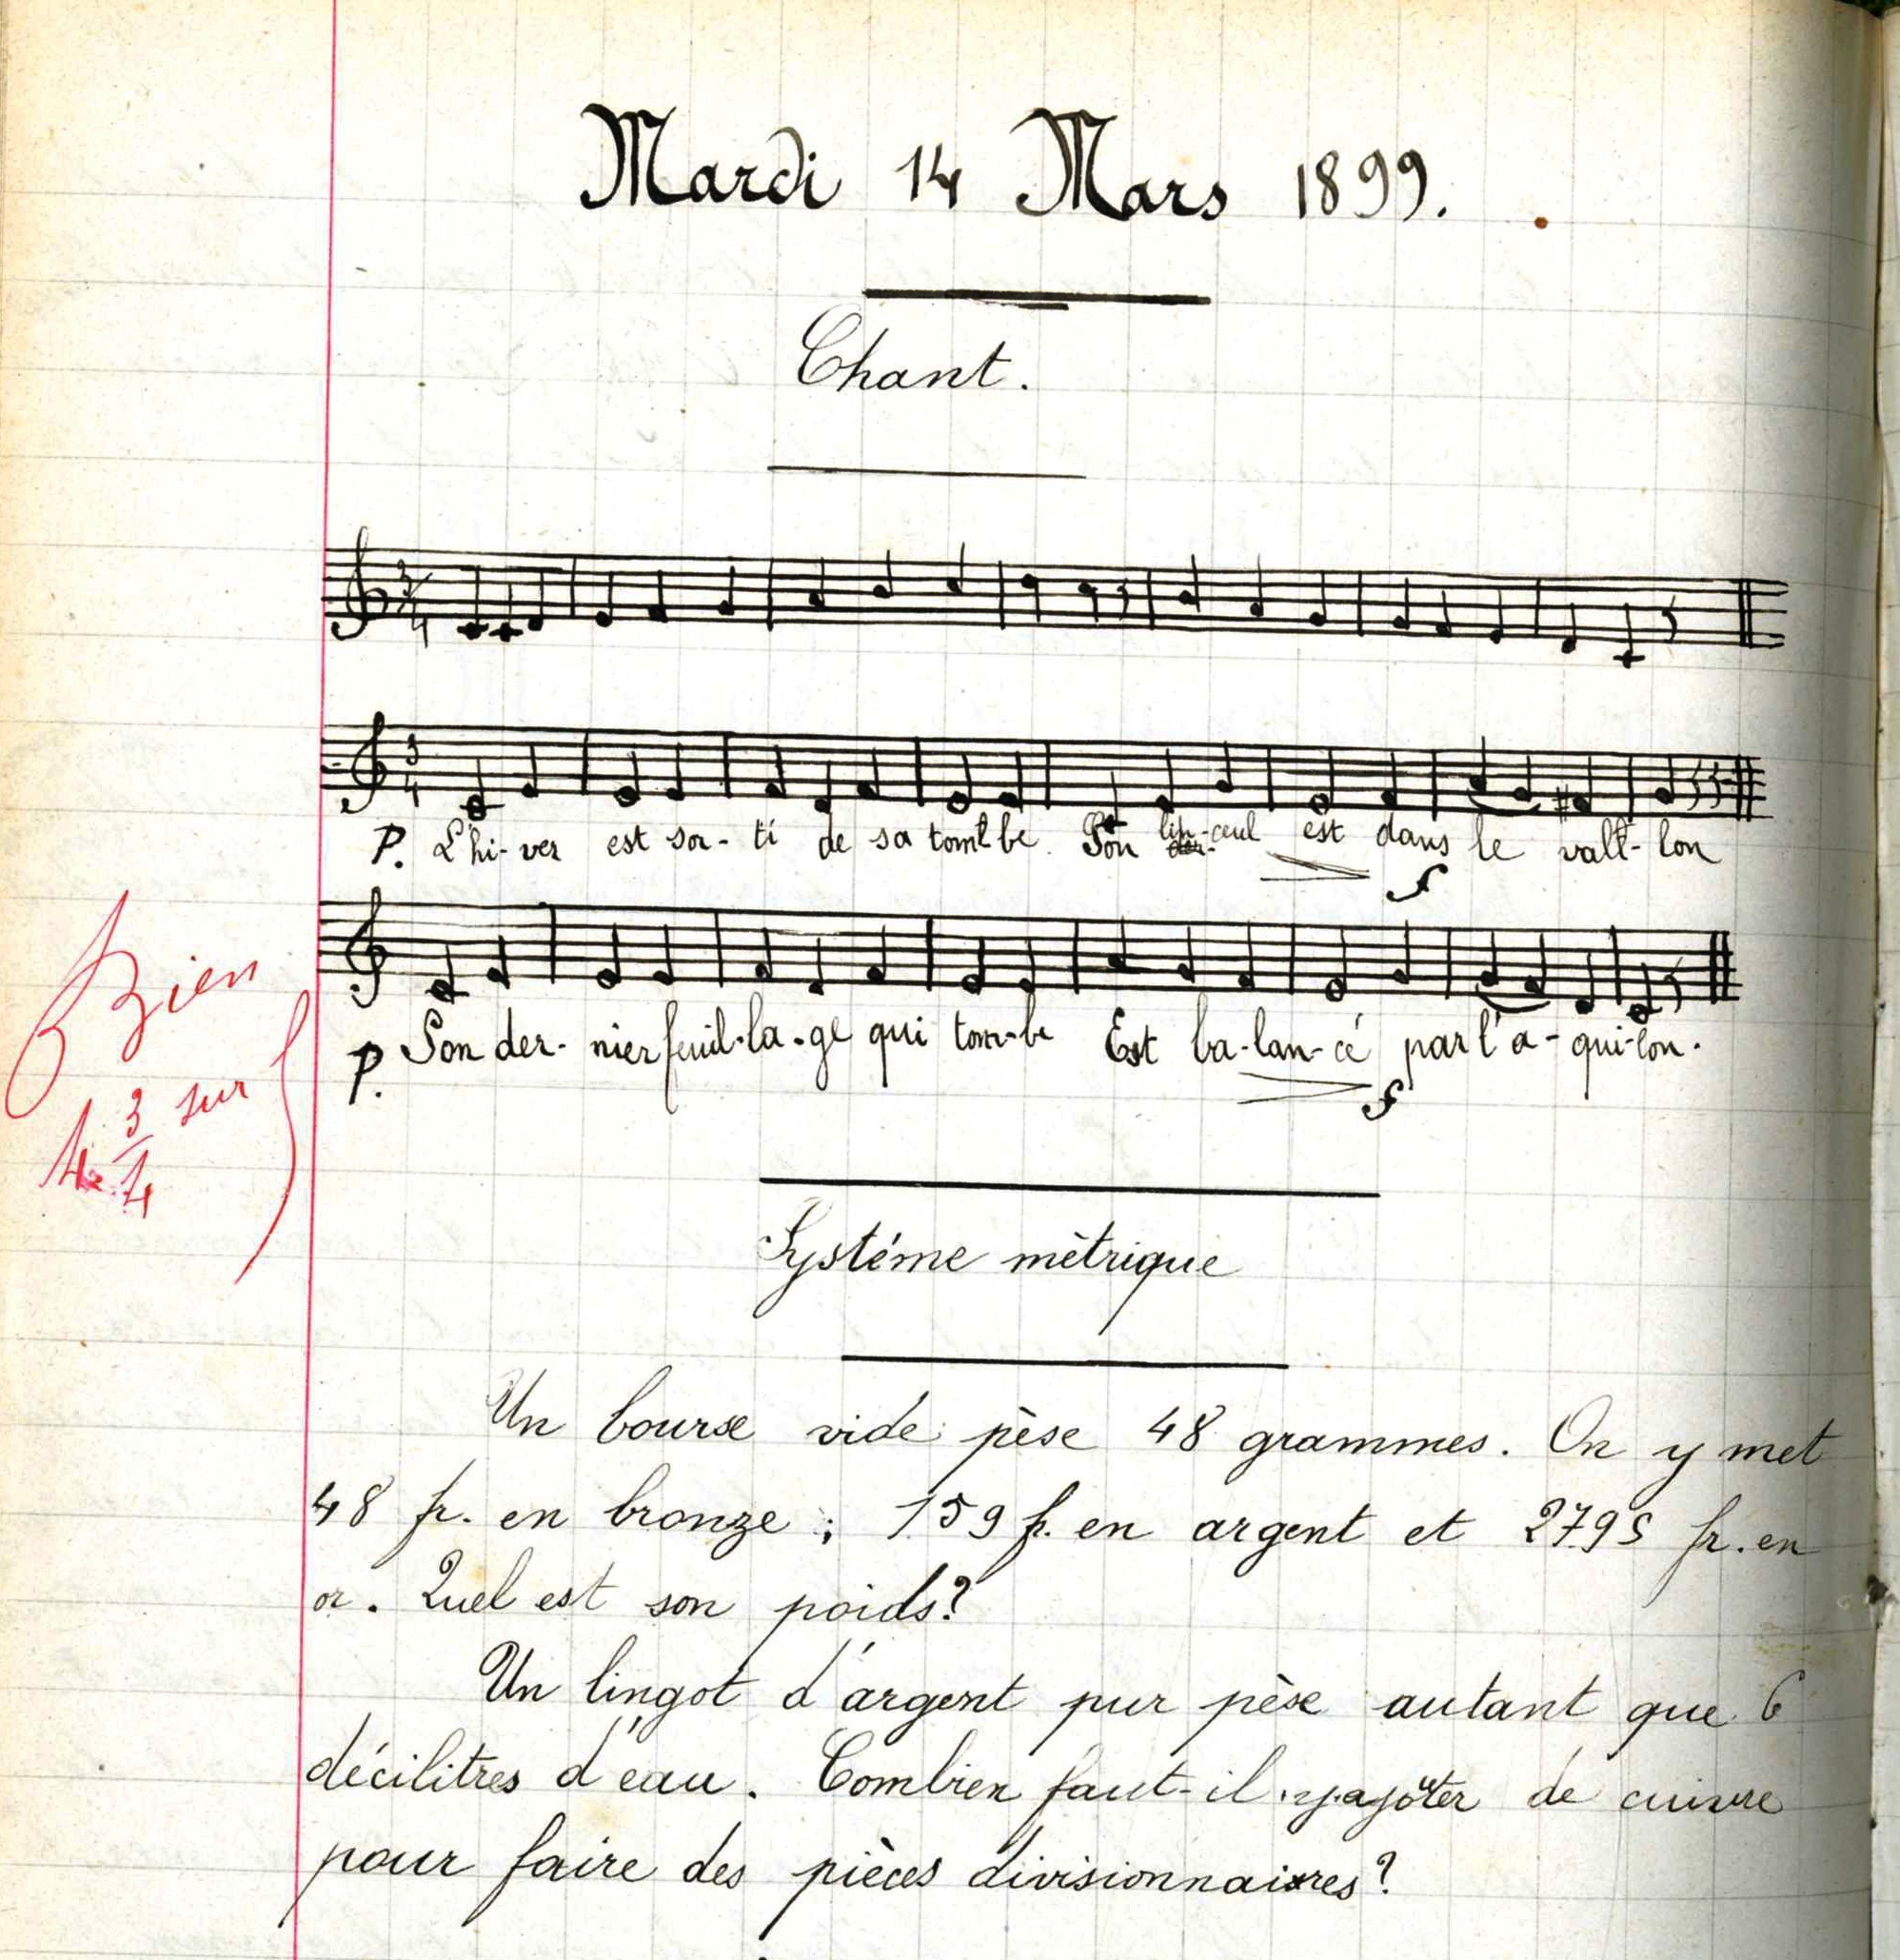 Mardi 14 Mars 1899.
Chant.
3
4
3
4
P. L'hi-ver est sor-ti de sa tom be. Son lin-ceul est dans le vall-lon
f
P. Son der-nier feuil-la-ge qui tom-be Est ba-lan-cé par l'a-qui-lon.
f
Bien
4 3/4 sur
Systéme mètrique
Un bourse vide pèse 48 grammes. On y met
48 fr. en bronze ; 159 f. en argent et 2795 fr. en
or. Quel est son poids?
Un lingot d'argent pur pèse autant que 6
décilitres d'eau. Combien faut-il y ajoûter de cuivre
pour faire des pièces divisionnaires?